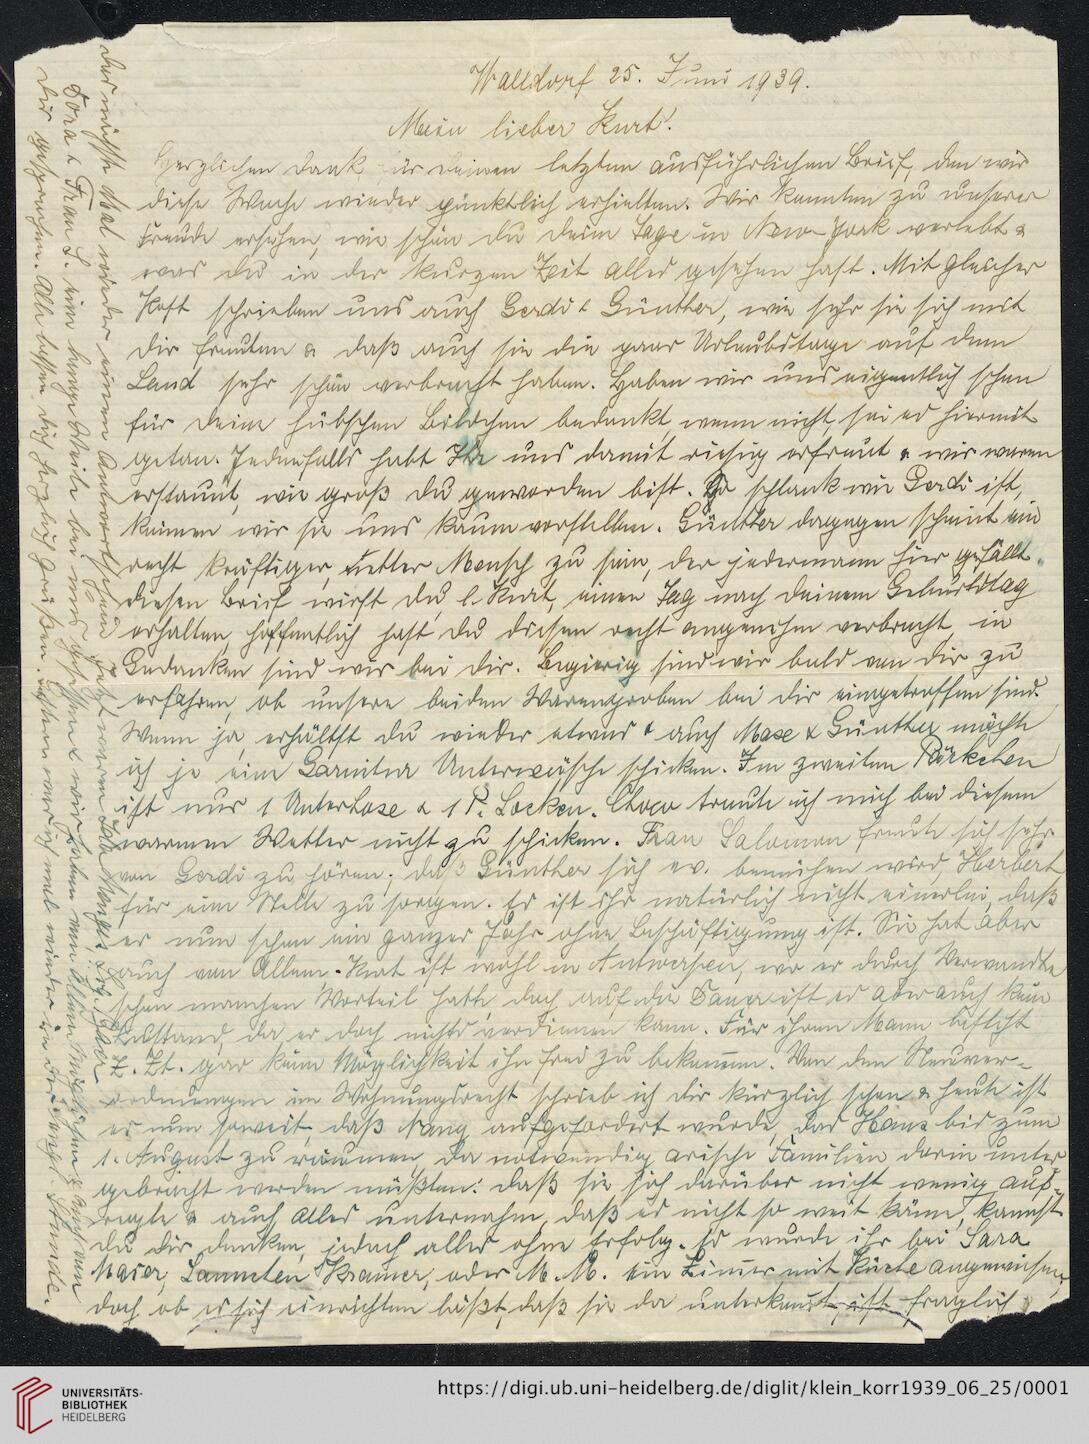 Walldorf 25. Juni 1939.
Mein lieber Kurt!
Herzlichen Dank für Deinen letzten ausführlichen Brief, den wir
diese Woche wieder pünktlich erhielten. Wir konnten zu unserer
Freude ersehen, wie schön Du Deine Tage in New-York verlebt &
was Du in der kurzen Zeit alles gesehen hast. Mit gleicher
Post schrieben uns auch Gerdi & Günther, wie sehr sie sich mit
Dir freuten & daß auch sie die paar Urlaubstage auf dem
Land sehr schön verbracht haben. Haben wir uns eigentlich schon
für Deine hübschen Bildchen bedankt, wenn nicht, sei es hiermit
getan. Jedenfalls habt Ihr uns damit riesig erfreut & wir waren
erstaunt, wie groß Du geworden bist. So schlank wie Gerdi ist,
können wir sie uns kaum vorstellen. Günther dagegen scheint ein
recht kräftiger, netter Mensch zu sein, der jedermann hier gefällt.
Diesen Brief wirst Du, l. Kurt, einen Tag nach Deinem Geburtstag
erhalten, hoffentlich hast Du diesen recht angenehm verbracht, in
Gedanken sind wir bei Dir. Begierig sind wir bald von Dir zu
erfahren, ob unsere beiden Warenproben bei Dir eingetroffen sind.
Wenn ja, erhältst Du wieder etwas & auch Maxe & Günther möchte
ich je eine Garnitur Unterwäsche schicken. Im zweiten Päckchen
ist nur 1 Unterhose & 1 P. Socken. Choco traute ich mich bei diesem
warmen Wetter nicht zu schicken. Frau Salomon freute sich sehr
von Gerdi zu hören; daß Günther sich ev. bemühen wird, Herbert
für eine Stelle zu sorgen. Es ist ihr natürlich nicht einerlei, daß
er nun schon ein ganzes Jahr ohne Beschäftigung ist. Sie hat aber
auch von Allem. Kurt ist wohl in Antwerpen, wo er durch Verwandte
schon manchen Vorteil hatte, doch auf die Dauer ist es aber auch kein
Zustand, da er doch nichts verdienen kann. Für ihren Mann besteht
z. Zt. gar keine Möglichkeit ihn frei zu bekommen. Von den Neuver-
ordnungen im Wohnungsrecht schrieb ich Dir kürzlich schon & heute ist
es nun soweit, daß Nanny aufgefordert wurde, das Haus bis zum
1. August zu räumen, da notwendig arische Familien darin unter
gebracht werden müßten. Daß sie sich darüber nicht wenig auf-
regte & auch alles unternahm, daß es nicht so weit käme, kannst
Du Dir denken, jedoch alles ohne Erfolg. Es wurde ihr bei Sara
Maier, Kramer, oder M. M. ein Zimmer mit Küche angewiesen,
doch ob es sich einrichten läßt, daß sie da unterkommt ist fraglich
das nächste Mal wieder einen
Dora & Frau L. eine lange Weile bei uns gesessen & wir haben von allem Möglichen & auch von
Dir gesprochen. Alle lassen Dich herzlich grüßen. Gestern war ich mal wieder in der engl. Stunde.
UNIVERSITÄTS-
BIBLIOTHEK
HEIDELBERG
https://digi.ub.uni-heidelberg.de/diglit/klein_korr1939_06_25/0001